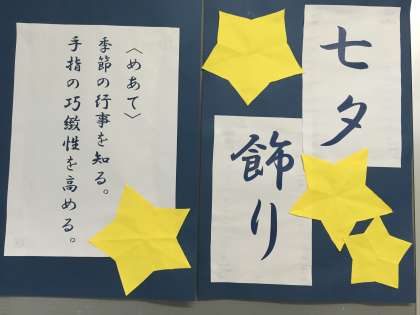 七夕
飾り
〈めあて〉
季節の行事を知る。
手指の巧緻性を高める。